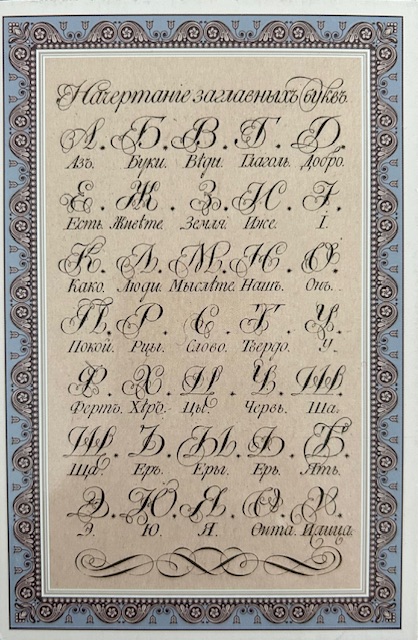 Начертаніе заглавныхъ буквъ.
А. Б. В. Г. Д.
Азъ. Буки. Вѣди. Глаголь. Добро.
Е. Ж. З. И. І.
Есть. Живѣте. Земля. Иже. І.
К. Л. М. Н. О.
Како. Люди. Мыслѣте. Нашъ. Онъ.
П. Р. С. Т. У.
Покой. Рцы. Слово. Твердо. У.
Ф. Х. Ц. Ч. Ш.
Фертъ. Хѣръ. Цы. Червь. Ша.
Щ. Ъ. Ы. Ь. Ѣ.
Ща. Еръ. Еры. Ерь. Ять.
Э. Ю. Я. Ѳ. Ѵ.
Э. Ю. Я. Ѳита. Ижица.